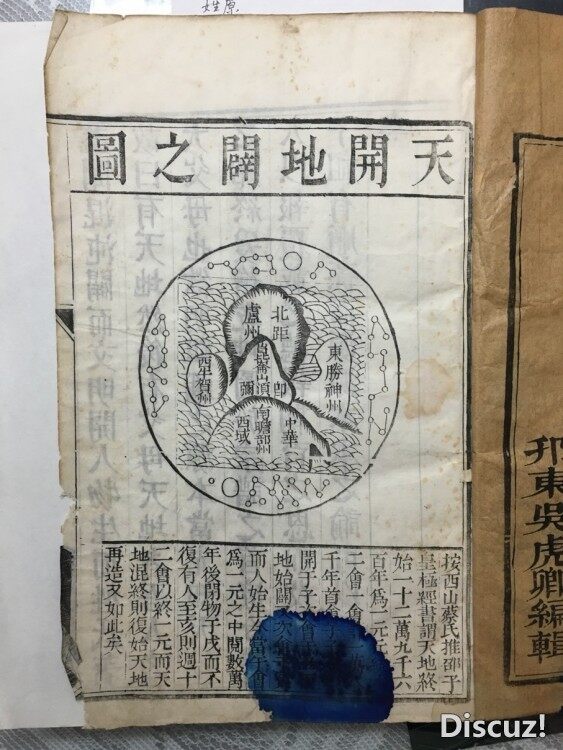 天開地闢之圖
北距
盧州
東勝神州
西牛賀州
崑崙山
即
彌
南瞻部州
中華
西域
按西山蔡氏推邵子
皇極經書謂天地終
始一十二萬九千六
百年爲一元
二會一會一萬
千年首會子
開于子次會
地始闢次會
而人始生當午會
爲一元之中開數萬
年後閉物于戌而不
復有人至亥則週十
二會以終一元而天
地混終則復始天地
再造又如此矣
邗東吳虎卿編輯
Discuz!